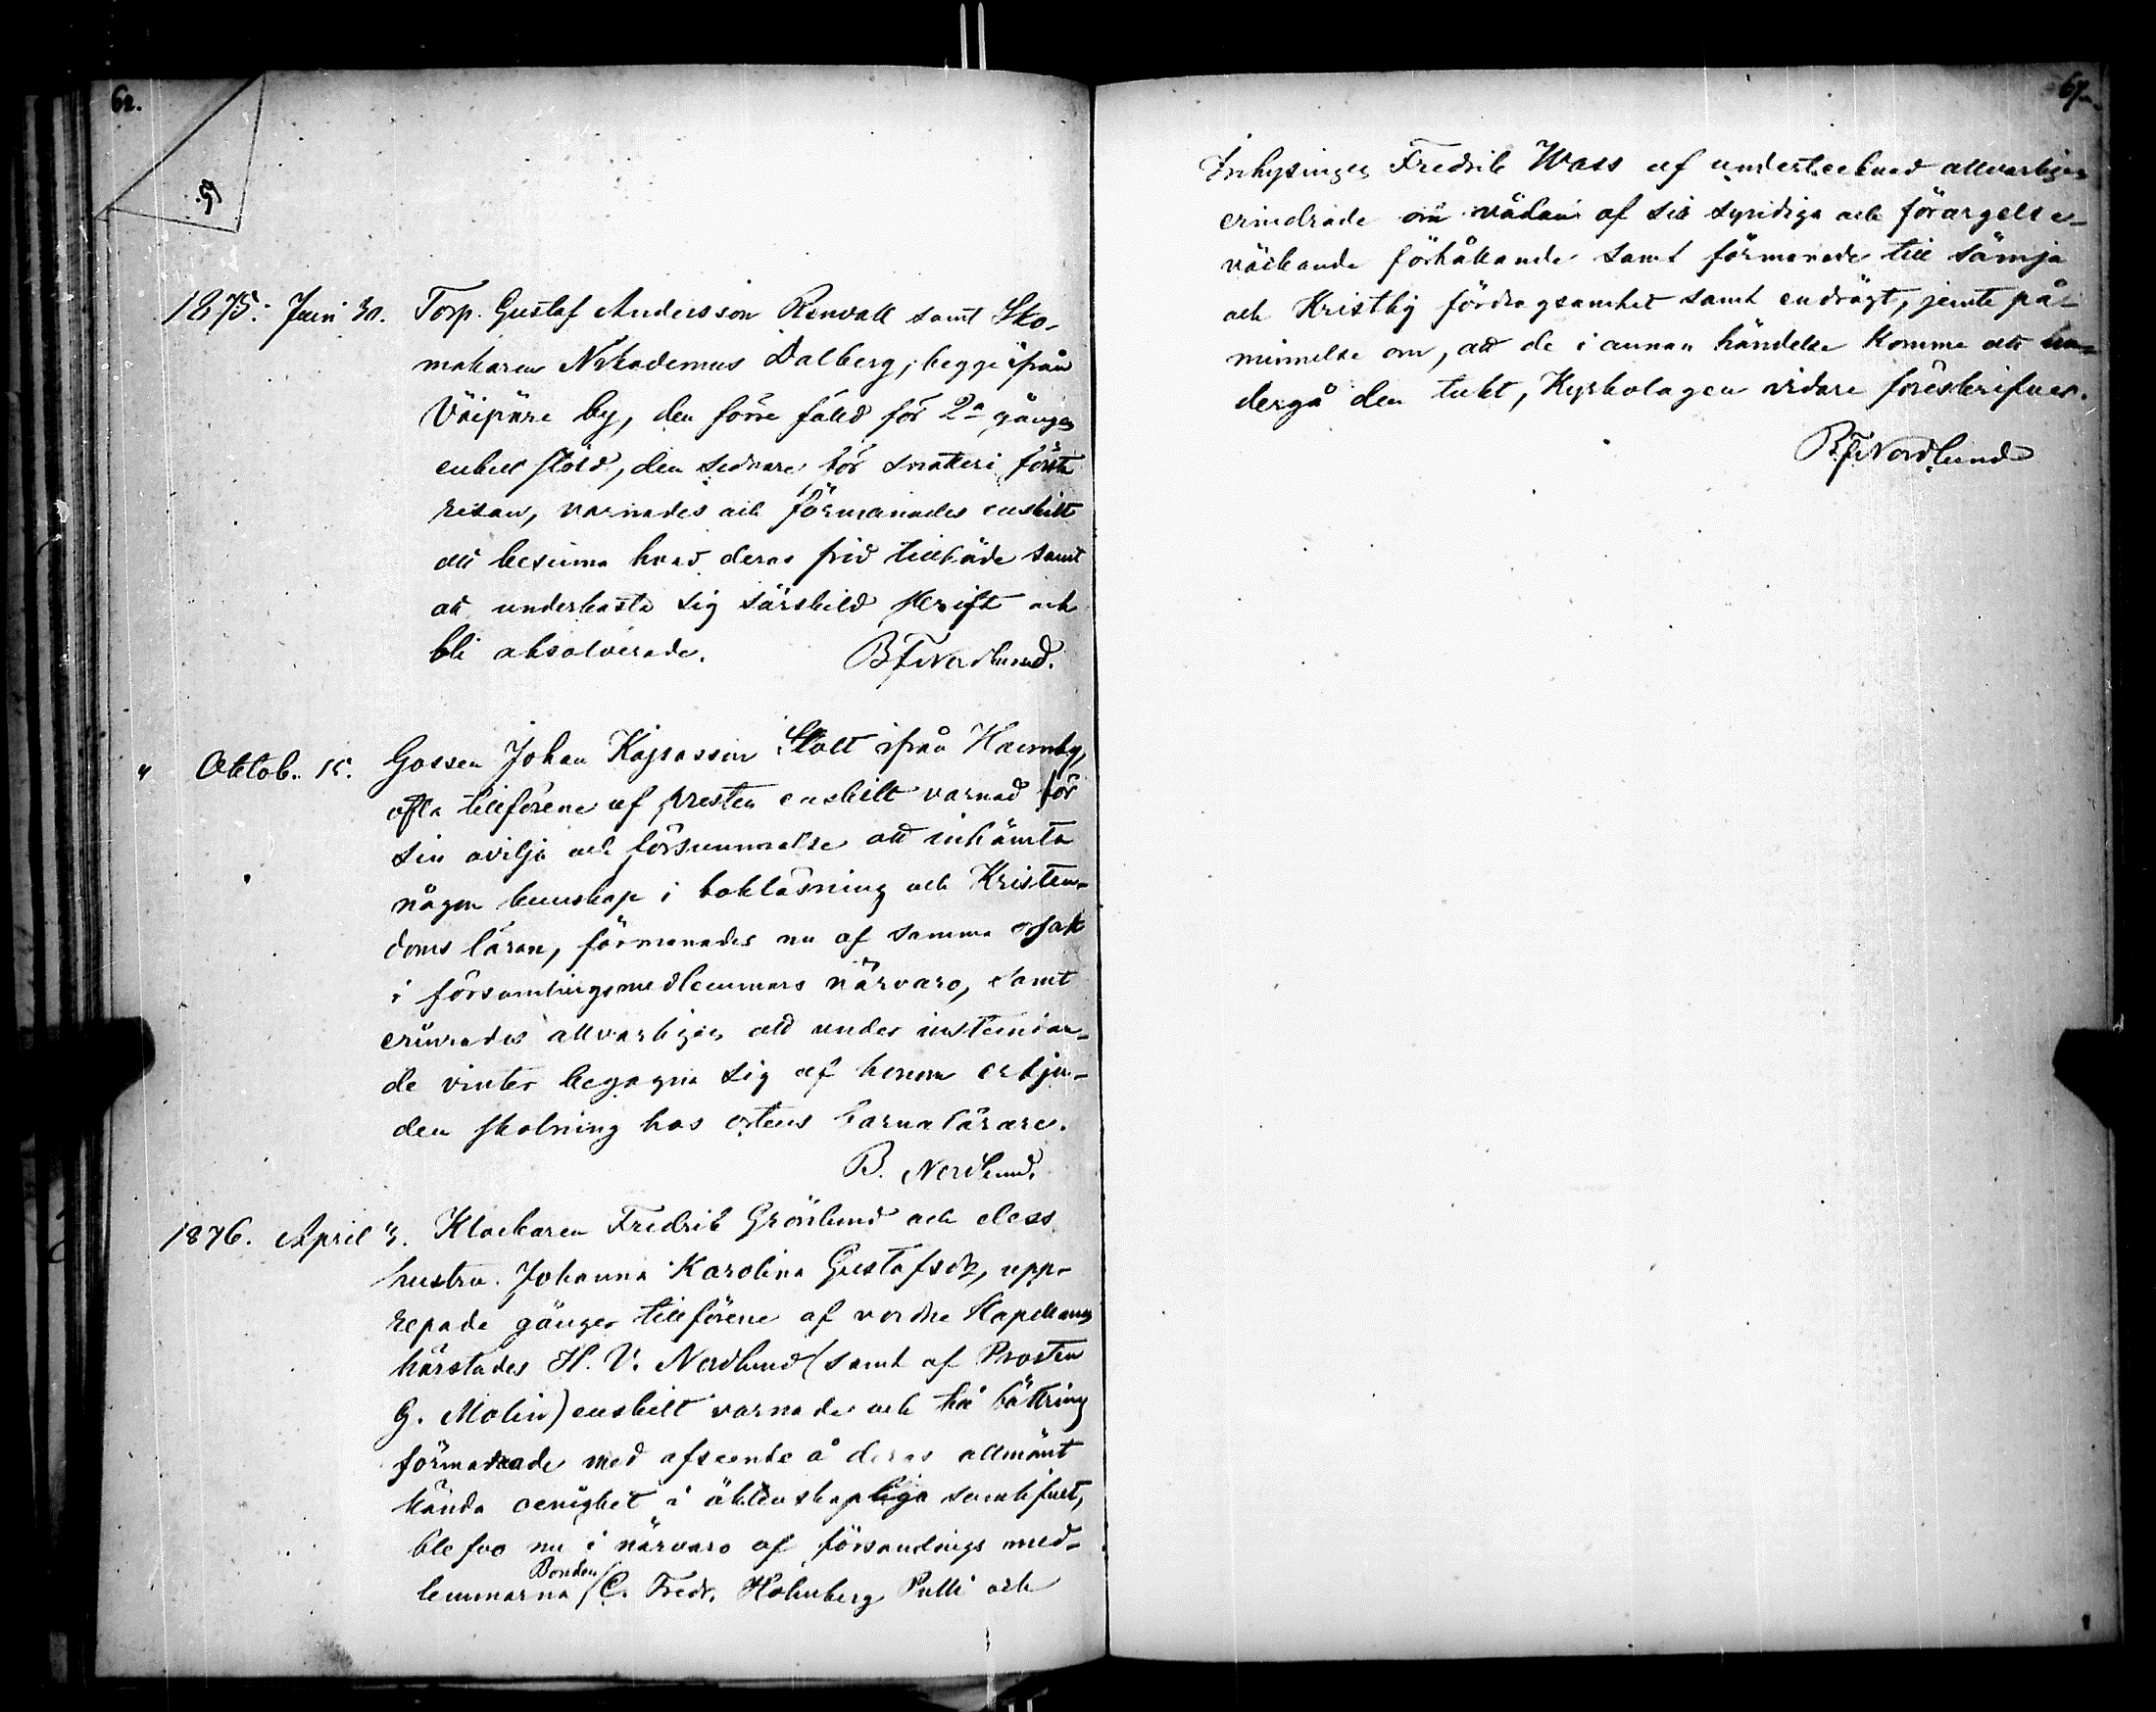 62.
67.
1875: Juni 30. Torp. Gustaf Andersson Renvall samt Sko-
makaren Nikodemus Dalberg, begge ifrån
Väipäre by, den förre fälld för 2a gången
enkel stöld, den sednare för snatteri första
resan, varnades och förmanades enskilt
att besinna hvad deras frid tillhörde samt
att underkasta sig särskild skrift och
bli absolverade. B F Nordlund.
" Oktob. 15. Gossen Johan Kajsasson Slott ifrån Hannby,
ofta tillförene af presten enskilt varnad för
sin ovilja och försummelse att inhämta
någon kunskap i bokläsning och Kristen-
doms läran, förmanades nu af samma orsak
i församlingsmedlemmars närvaro, samt
erinrades allvarligen att under instundan-
de vinter begagna sig af honom erbju-
den skolning hos ortens barnalärare.
B. Nordlund.
1876. April 3. Klockaren Fredrik Grönlund och dess
hustru Johanna Karolina Gustafsdr, upp-
repade gånger tillförene af vordne Kapellanen
härstädes H. V. Nordlund (samt af Prosten
G. Molin) enskilt varnade och till bättring
förmanade med afseende å deras allmänt
kända oenighet i äktenskapliga samlifvet,
blefvo nu i närvaro af församlings med-
lemmarna Bonden C. Fredr. Holmberg Pulli och
Inhysingen Fredrik Wass af undertecknad allvarligen
erindrade om vådan af sitt syndiga och förargelse-
väckande förhållande samt förmanade till sämja
och Kristlig fördragsamhet samt endrägt, jemte på-
minnelse om, att de i annan händelse komma att un-
dergå den tukt, Kyrkolagen vidare föreskrifver.
B F Nordlund